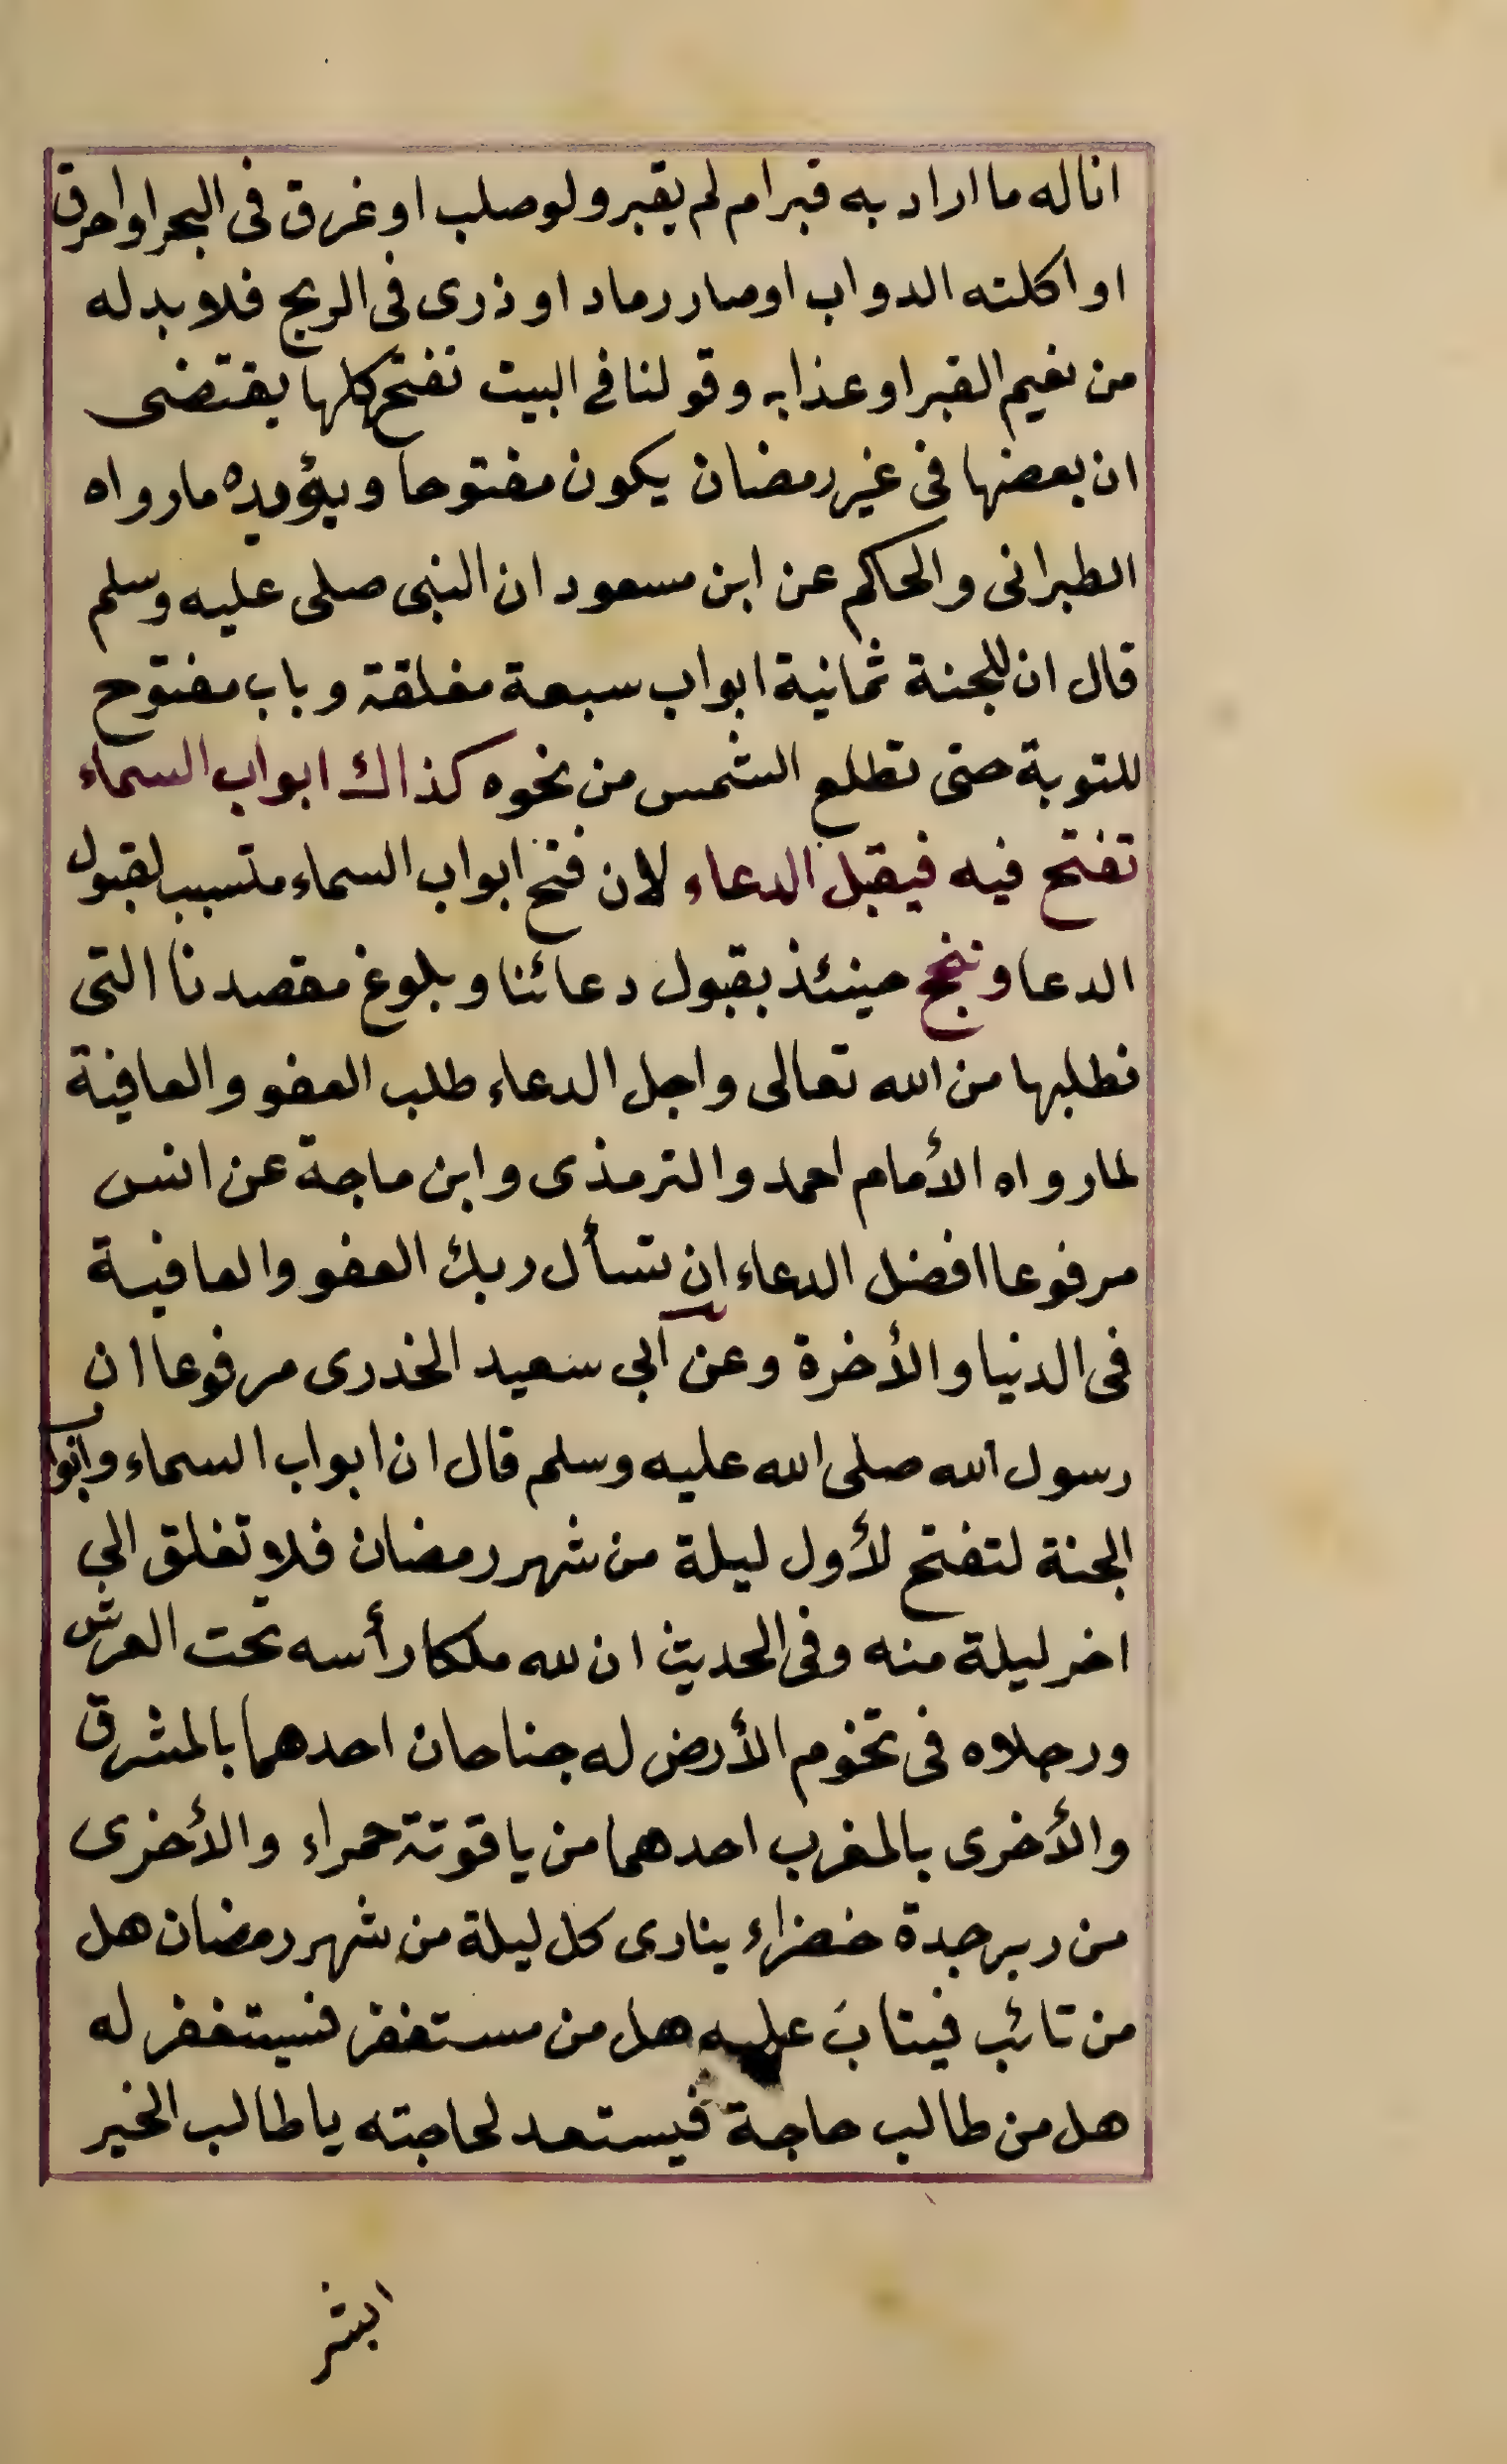 اناله ما اراد به قبر ام لم يقبر ولو صلب او غرق فى البحر او احرق
او اكلته الدواب او صار رماد او ذرى فى الريح فلا بد له
من نعيم القبر او عذابه وقولنا فى البيت تفتح كلها يقتضى
ان بعضها فى غير رمضان يكون مفتوحا ويؤيده ما رواه
الطبرانى والحاكم عن ابن مسعود ان النبى صلى عليه وسلم
قال ان للجنة ثمانية ابواب سبعة مغلقة وباب مفتوح
للتوبة حتى تطلع الشمس من نحوه كذاك ابواب السماء
تفتح فيه فيقبل الدعاء لان فتح ابواب السماء متسبب لقبول
الدعا وننجح حينئذ بقبول دعائنا وبلوغ مقصدنا التى
نطلبها من الله تعالى واجل الدعاء طلب العفو والعافية
لما رواه الأمام احمد والترمذى وابن ماجة عن انس
مرفوعا افضل الدعاء ان تسأل ربك العفو والعافية
فى الدنيا والأخرة وعن ابي سعيد الخدرى مرفوعا ان
رسول الله صلى الله عليه وسلم قال ان ابواب السماء وابواب
الجنة لتفتح لأول ليلة من شهر رمضان فلا تغلق الي
اخر ليلة منه وفى الحديث ان لله ملكا رأسه تحت العرش
ورجلاه فى تخوم الأرض له جناحان احدهما بالمشرق
والأخرى بالمغرب احدهما من ياقوتة حمراء والأخرى
من زبرجدة خضراء ينادى كل ليلة من شهر رمضان هل
من تائب فيتابَ عليه هل من مستغفر فسيتغفر له
هل من طالب حاجة فيستعد لحاجته يا طالب الخير
ابشر